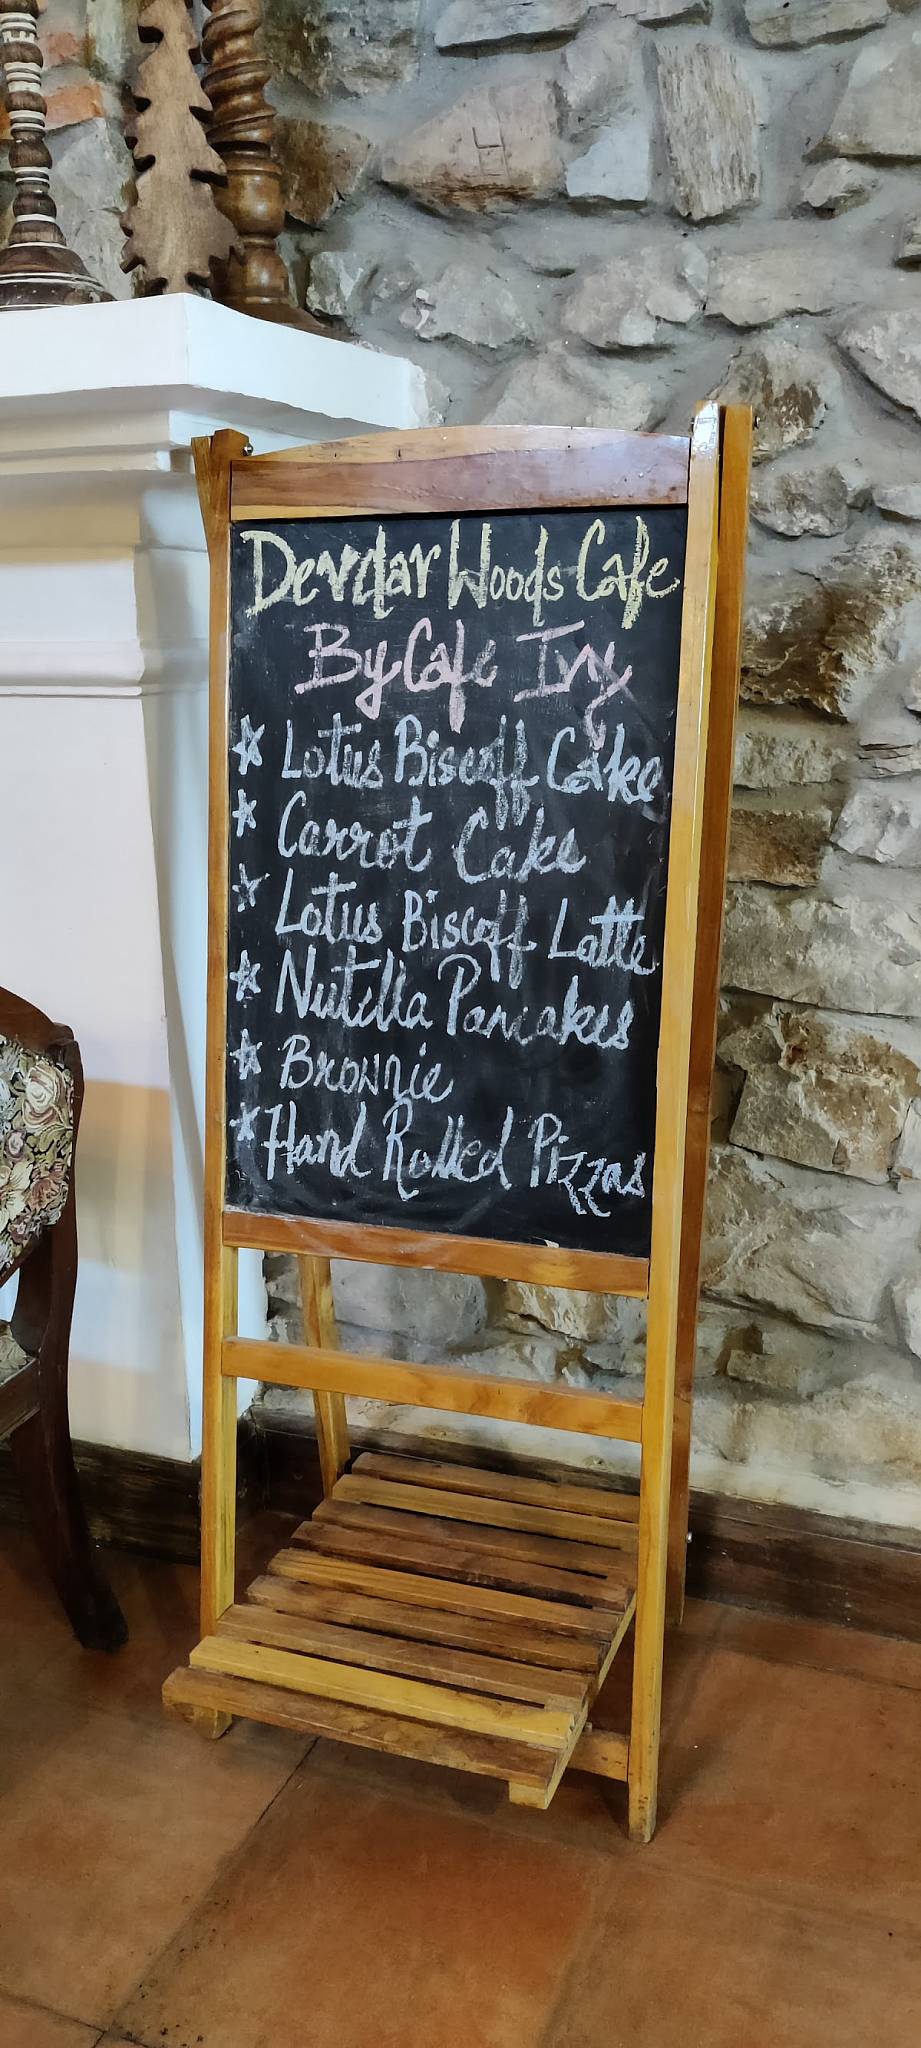 Devdar Woods Cafe
By Cafe Ivy
☆ Lotus Biscoff Cake
☆ Carrot Cake
☆ Lotus Biscoff Latte
☆ Nutella Pancakes
☆ Brownie
☆ Hand Rolled Pizzas